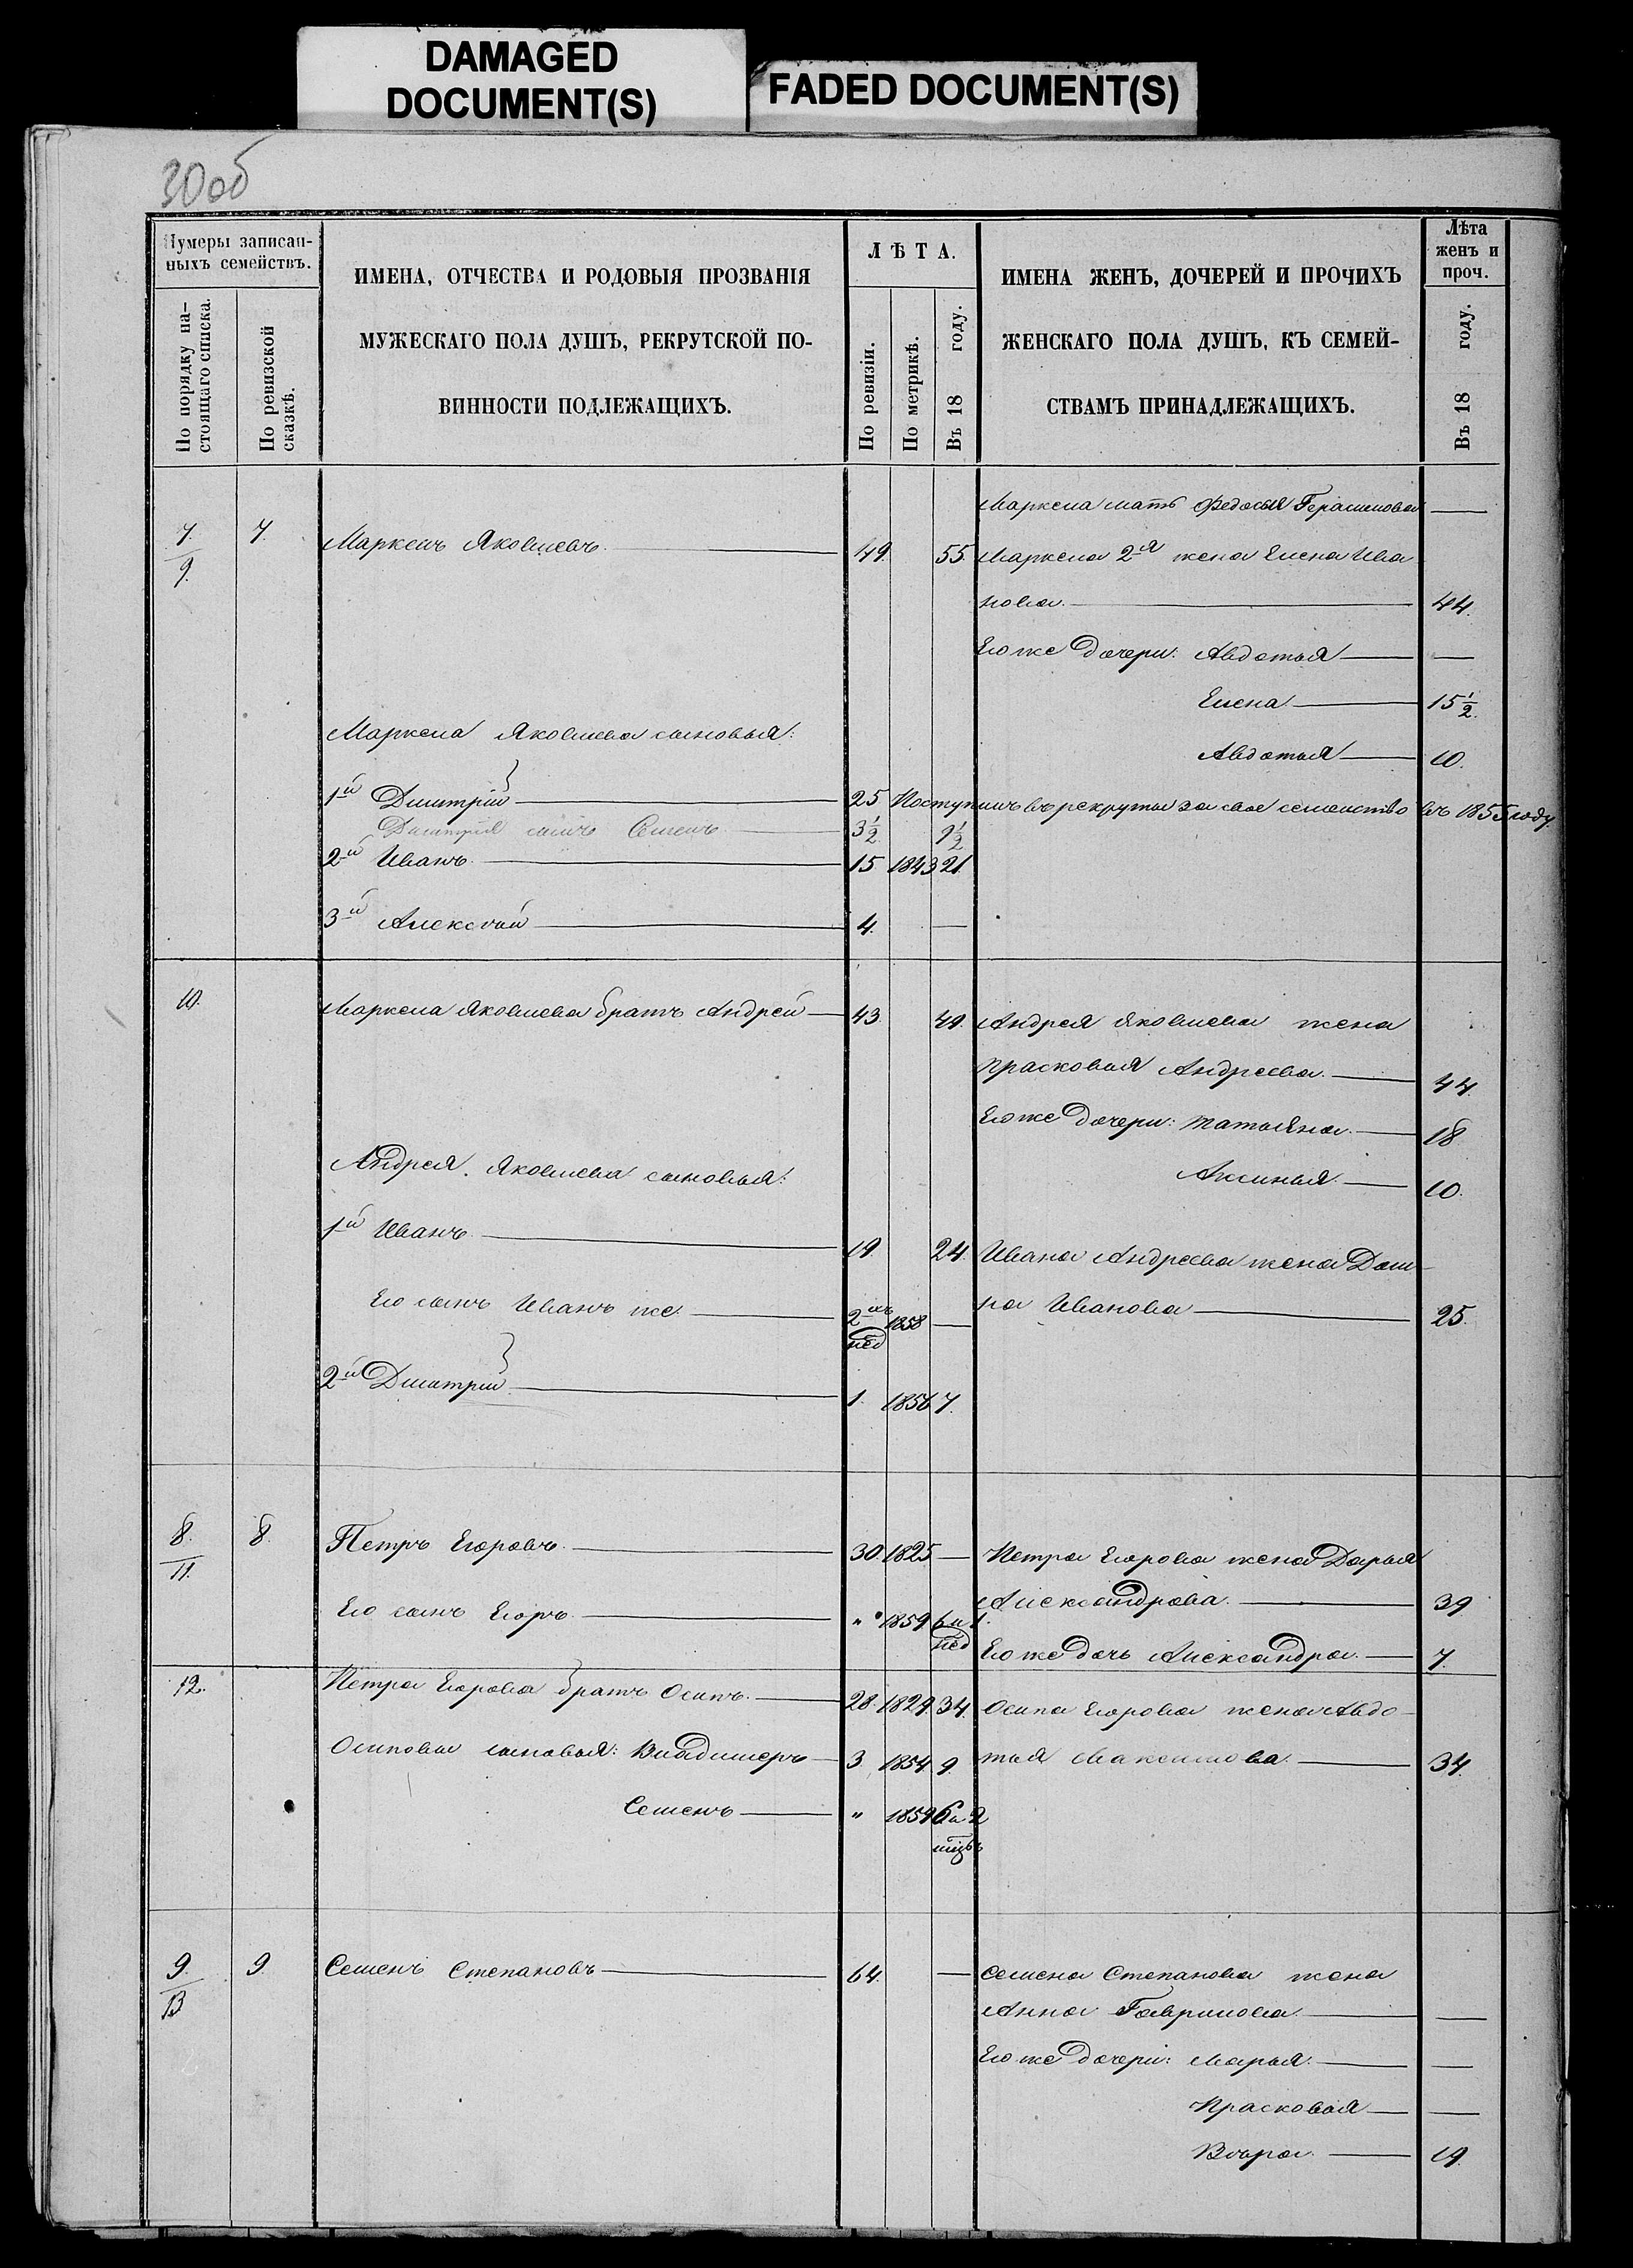 DAMAGED
DOCUMENT(S)
FADED DOCUMENT(S)
30об
Нумеры записан-
ныхъ семействъ.
По порядку на-
стоящаго списка.
По ревизской
сказкѣ.
ИМЕНА, ОТЧЕСТВА И РОДОВЫЯ ПРОЗВАНІЯ
МУЖЕСКАГО ПОЛА ДУШЪ, РЕКРУТСКОЙ ПО-
ВИННОСТИ ПОДЛЕЖАЩИХЪ.
ЛѢТА.
По ревизіи.
По метрикѣ.
Въ 18 году.
ИМЕНА ЖЕНЪ, ДОЧЕРЕЙ И ПРОЧИХЪ
ЖЕНСКАГО ПОЛА ДУШЪ, КЪ СЕМЕЙ-
СТВАМЪ ПРИНАДЛЕЖАЩИХЪ.
Лѣта
женъ и
проч.
Въ 18 году.
Маркела мать Федосья Герасимова —
7/9. 7. Маркелъ Яковлевъ. — 49. 55. Маркела 2я жена Елена Ива
нова. — 44.
Его же дочери: Авдотья — —
Елена — 15 1/2.
Маркела Яковлева сыновья:
Авдотья — 10.
1й Дмитрій — 25 Поступилъ въ рекруты за свое семейство въ 1855 году.
Дмитрія сынъ Семенъ — 3 1/2. 9 1/2
2й Иванъ. — 15 1843 21.
3й Алексѣй — 4. —
10. Маркела Яковлева братъ Андрей — 43. 49. Андрея Яковлева жена
Прасковья Андреева. — 44.
Его же дочери: Татьяна. — 18
Андрея Яковлева сыновья:
Аксинья. — 10.
1й Иванъ — 19. 24. Ивана Андреева жена Дом-
на Иванова — 25.
Его сынъ Иванъ же. — 2хъ нед 1858 —
2й Дмитрій. — 1. 1856 7.
8/11. 8. Петръ Егоровъ. — 30. 1825 — Петра Егорова жена Дарья
Александрова. — 39
Его сынъ Егоръ. — " 1859 6 и 1. нед
Его же дочь Александра. — 7.
12. Петра Егорова братъ Осипъ. — 28. 1829. 34. Осипа Егорова жена Авдо-
тья Максимова. — 34.
Осиповы сыновья: Владимеръ — 3 1854 9.
Семенъ — " 1859 6 и 2 мцъ
9/13 9. Семенъ Степановъ — 64. — Семена Степанова жена
Анна Гаврилова. — —
Его же дочери: Марья. — —
Прасковья — —
Вѣра. — 19.